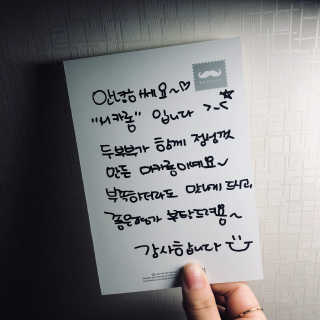 안녕하세요~♡
"시카롱" 입니다 >_<☆
두부부가 함께 정성껏
만든 마카롱이예요~
부족하더라도 맛나게 드시고,
좋은평가 부탁드려용~
감사합니다 :)